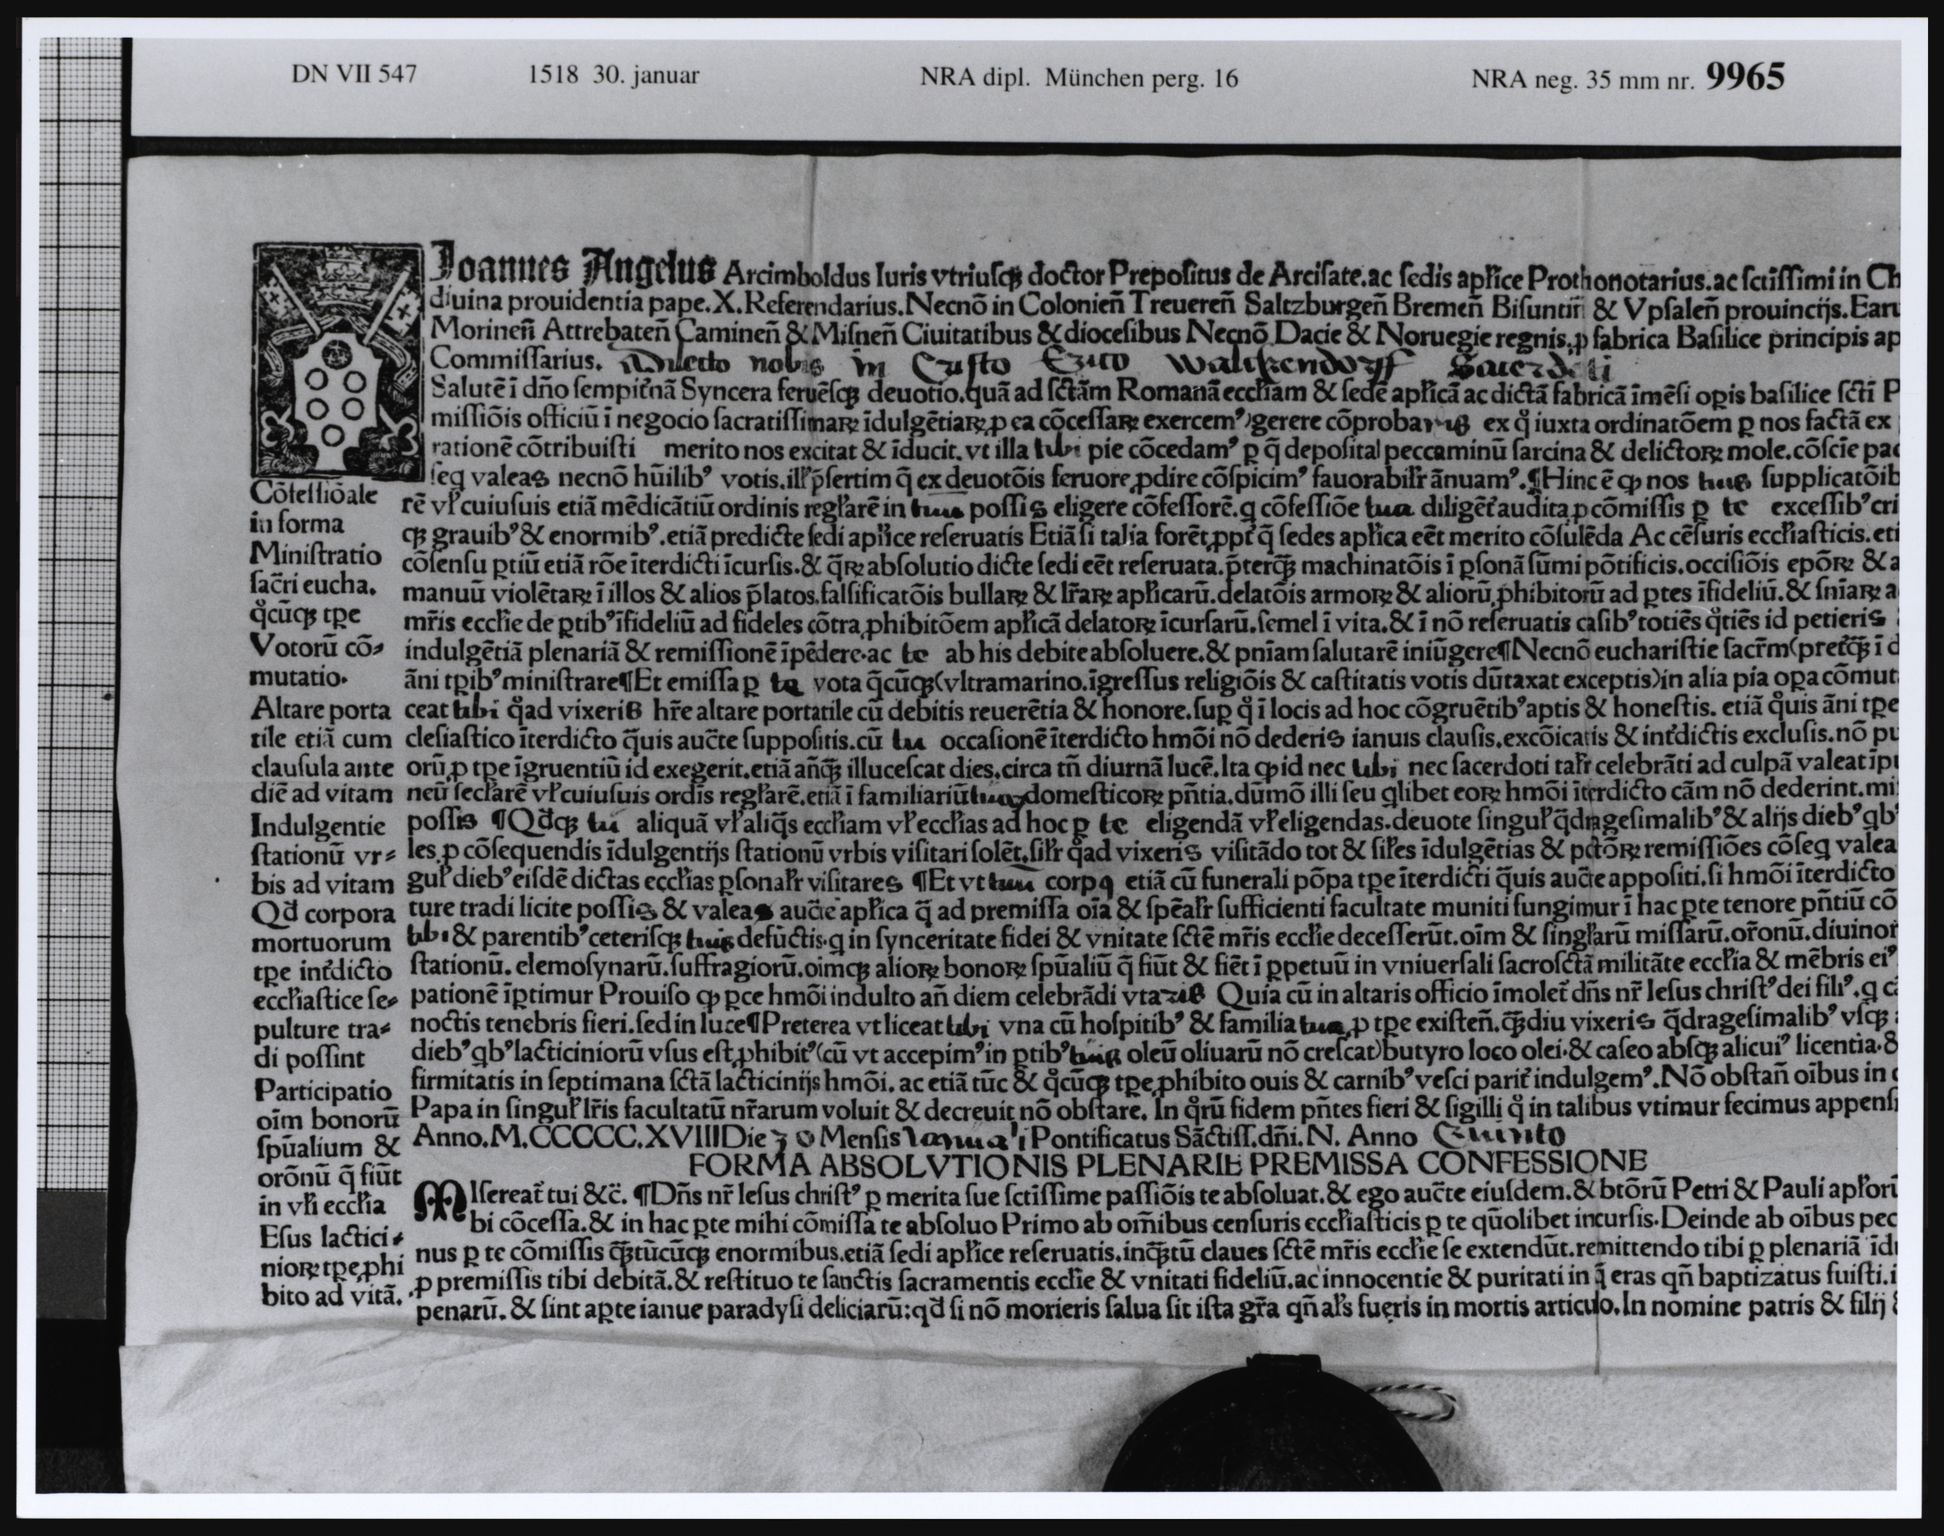 DN VII 547 1518 30. januar NRA dipl. München perg. 16 NRA neg. 35 mm nr. 9965
Joannes Angelus Arcimboldus Iuris vtriuſqꝫ doctor Prepoſitus de Arciſate.ac ſedis apl̓ice Prothonotarius.ac ſctiſſimi in Ch
diuina prouidentia pape.X.Referendarius.Necnō in Colonien̄ Treueren̄ Saltzburgen̄ Bremen̄ Biſuntin̄ & Vpſalen̄ prouincijs.Earu
Morinen̄ Attrebaten̄ Caminen̄ & Miſnen̄ Ciuitatibus & dioceſibus Necnō Dacie & Noruegie regnis.ꝓ fabrica Baſilice principis ap
Commiſſarius. Dilecto nobis in Cristo Erico Walkendorff Sacerdoti
Salutē ī dn̄o ſempit̓nā Syncera feruēſqꝫ deuotio.quā ad ſctām Romanā eccl̓iam & ſedē apl̓icā ac dictā fabricā īmēſi oꝑis baſilice ſctī P
miſſiōis officiū ī negocio ſacratiſſimaꝝ īdulgētiaꝝ.ꝓ ea cōceſſaꝝ exercem⁹ gerere cōproba ex q̊ iuxta ordinatōem ꝑ nos factā ex
rationē cōtribuiſti merito nos excitat & īducit.vt illa tibi pie cōcedam⁹ ꝑ q̄ depoſita peccaminū ſarcina & delictoꝝ mole.cōſcīe pac
ſeq valeas necnō hūilib⁹ votis.ill̓ p̄ſertim q̄ ex deuotōis feruore.ꝓdire cōſpicim⁹ fauorabil̓r ānuam⁹.¶Hinc ē ꝙ nos tuis ſupplicatōib
rē vl̓ cuiuſuis etiā mēdicātiū ordinis regl̓arē in tuum poſſis eligere cōfeſſorē.q cōfeſſiōe tua diligēt̓ audita.ꝓ cōmiſſis ꝑ te exceſſib⁹ cri
qꝫ grauib⁹ & enormib⁹.etiā predicte ſedi apl̓ice reſeruatis Etiā ſi talia forēt.ꝓpt̓ q̄ ſedes apl̓ica eēt merito cōſulēda Ac cēſuris eccl̓iaſticis.eti
cōſenſu ꝑtiū etiā rōe īterdicti īcurſis.& q̄ꝝ abſolutio dicte ſedi eēt reſeruata.p̄terqꝫ machinatōis ī ꝑſonā ſūmi pōtificis.occiſiōis epōꝝ & a
manuū violētaꝝ ī illos & alios p̄latos.falſificatōis bullaꝝ & lr̄aꝝ apl̓icarū.delatōis armoꝝ & aliorū.ꝓhibitorū ad ꝑtes īfideliū.& ſnīaꝝ a
mr̄is eccl̓ie de ꝑtib⁹ īfideliū ad fideles cōtra.ꝓhibitōem apl̓icā delatoꝝ īcurſarū.ſemel ī vita.& ī nō reſeruatis caſib⁹ totiēs q̊tiēs id petieris
indulgētiā plenariā & remiſſionē īpēdere.ac te ab his debite abſoluere.& pn̄iam ſalutarē iniūgere¶Necnō euchariſtie ſacr̄m(pret̓qꝫ ī d
āni tꝑib⁹ miniſtrare¶Et emiſſa ꝑ te vota q̄cūqꝫ(vltramarino.īgreſſus religiōis & caſtitatis votis dūtaxat exceptis)in alia pia oꝑa cōmut
ceat tibi q̊ad vixeris hr̄e altare portatile cū debitis reuerētia & honore.ſuꝑ q̊ ī locis ad hoc cōgruētib⁹ aptis & honeſtis. etiā q̊uis āni tꝑe
cleſiaſtico īterdicto q̄uis auc̄te ſuppoſitis.cū tu occaſionē īterdicto hmōi nō dederis ianuis clauſis.excōicatis & int̓dictis excluſis.nō pu
orū.ꝓ tꝑe īgruentiū id exegerit.etiā an̄qꝫ illuceſcat dies.circa tn̄ diurnā lucē.Ita ꝙ id nec tibi nec ſacerdoti tal̓r celebrāti ad culpā valeat īpu
neū ſecl̓arē vl̓ cuiuſuis ordis regl̓arē.etiā ī familiariū tuoꝝ domeſticoꝝ pn̄tia.dūmō illi ſeu qlibet eoꝝ hmōi īterdicto cām nō dederint.mi
poſſis ¶Qd̓qꝫ tu aliquā vl̓ aliq̄s eccl̓iam vl̓ eccl̓ias ad hoc ꝑ te eligendā vl̓ eligendas.deuote ſingul̓ q̄dragеſimalib⁹ & alijs dieb⁹ qb⁹
les.ꝓ cōſequendis īdulgentijs ſtationū vrbis viſitari ſolēt.ſil̓r q̊ad vixeris viſitādo tot & ſil̓es īdulgētias & pctōꝝ remiſſiōes cōſeq valea
gul̓ dieb⁹ eiſdē dictas eccl̓ias ꝑſonal̓r viſitares ¶Et vt tuum corpꝰ etiā cū funerali pōpa tꝑe īterdicti q̄uis auc̄te appoſiti.ſi hmōi īterdicto
ture tradi licite poſſis & valeas auc̄te apl̓ica q̄ ad premiſſa oīa & ſpēal̓r ſufficienti facultate muniti fungimur ī hac ꝑte tenore pn̄tiū cō
tibi & parentib⁹ ceteriſqꝫ tuis defūctis.q in ſynceritate fidei & vnitate ſctē mr̄is eccl̓ie deceſſerūt.oīm & ſingl̓arū miſſarū.or̄onū.diuinor
ſtationū. elemoſynarū.ſuffragiorū.oīmqꝫ alioꝝ bonoꝝ ſpūaliū q̄ fiūt & fiēt ī ꝑpetuū in vniuerſali ſacroſctā militāte eccl̓ia & mēbris ei⁹
pationē īꝑtimur Prouiſo ꝙ ꝑce hmōi indulto an̄ diem celebrādi vtaris Quia cū in altaris officio īmolet̓ dn̄s nr̄ Ieſus chriſt⁹ dei fili⁹.q cā
noctis tenebris fieri.ſed in luce¶Preterea vt liceat tibi vna cū hoſpitib⁹ & familia tua.ꝓ tꝑe exiſten̄.qꝫdiu vixeris q̄drageſimalib⁹ vſqꝫ
dieb⁹ qb⁹ lacticiniorū vſus eſt.ꝓhibit⁹(cū vt accepim⁹ in ꝑtib⁹ tuis oleū oliuarū nō creſcat)butyro loco olei.& caſeo abſqꝫ alicui⁹ licentia.&
firmitatis in ſeptimana ſctā lacticinijs hmōi. ac etiā tūc & q̊cūqꝫ tꝑe.ꝓhibito ouis & carnib⁹ veſci parit̓ indulgem⁹.Nō obſtan̄ oībus in c
Papa in ſingul̓ lr̄is facultatū nr̄arum voluit & decreuit nō obſtare. In q̊rū fidem pn̄tes fieri & ſigilli q̊ in talibus vtimur fecimus appenſi
Anno.M.CCCCC.XVIII Die 30 Menſis Januarii Pontificatus Sāctiſſ.dn̄i.N. Anno Quinto
FORMA ABSOLVTIONIS PLENARIE PREMISSA CONFESSIONE
MIſereat̓ tui &c̄. ¶Dn̄s nr̄ Ieſus chriſt⁹ ꝑ merita ſue ſctiſſime paſſiōis te abſoluat.& ego auc̄te eiuſdem.& btōrū Petri & Pauli apl̓orū
bi cōceſſa.& in hac ꝑte mihi cōmiſſa te abſoluo Primo ab om̄ibus cenſuris eccl̓iaſticis ꝑ te qūolibet incurſis.Deinde ab oībus pec
nus ꝑ te cōmiſſis qꝫtūcūqꝫ enormibus.etiā ſedi apl̓ice reſeruatis.inqꝫtū claues ſctē mr̄is eccl̓ie ſe extendūt.remittendo tibi ꝑ plenariā īdu
ꝓ premiſſis tibi debitā.& reſtituo te ſanctis ſacramentis eccl̓ie & vnitati fideliū.ac innocentie & puritati in q̄ eras qn̄ baptizatus fuiſti.i
penarū. & ſint aꝑte ianue paradyſi deliciarū:qd̓ ſi nō morieris ſalua ſit iſta gr̄a qn̄ al̓s fueris in mortis articulo.In nomine patris & filij &
Cōfeſſiōale
in forma
Miniſtratio
ſacr̄i eucha.
q̊cūqꝫ tꝑe
Votorū cō⸗
mutatio.
Altare porta
tile etiā cum
clauſula ante
diē ad vitam
Indulgentie
ſtationū vr⸗
bis ad vitam
Qd̓ corpora
mortuorum
tꝑe int̓dicto
eccl̓iaſtice ſe⸗
pulture tra⸗
di poſſint
Participatio
oīm bonorū
ſpūalium &
orōnū q̄ fiūt
in vl̓i eccl̓ia
Eſus lactici⸗
nioꝝ tꝑe.ꝓhi
bito ad vitā.